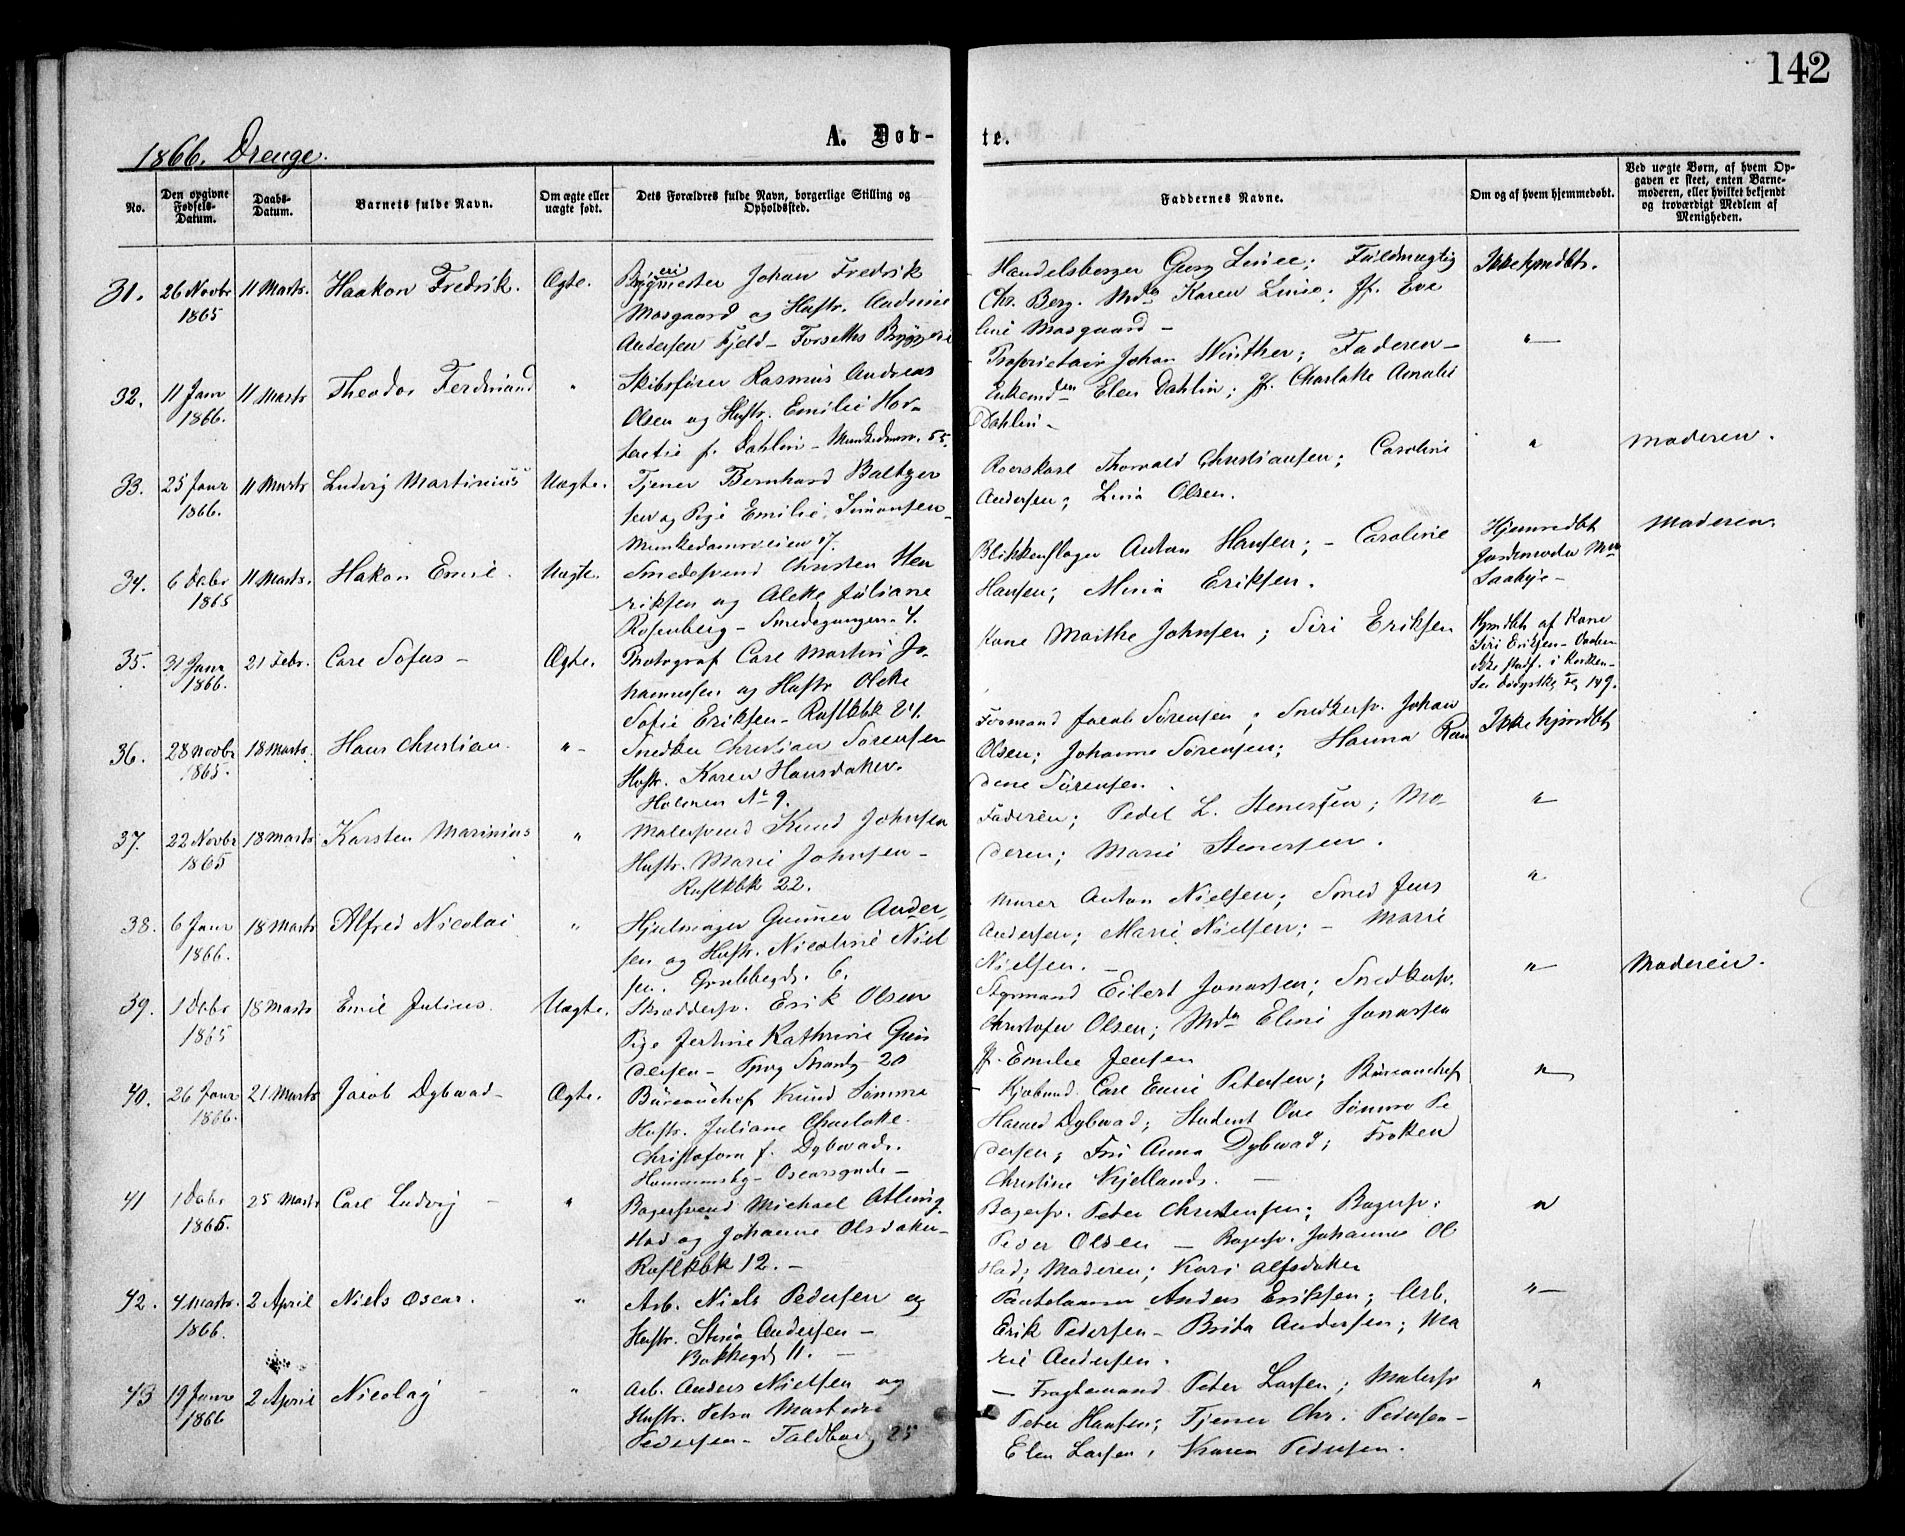 142
1866. Drenge.
A. Døb-
te.
No.
Den opgivne Fødsels-Datum.
Daabs-Datum.
Barnets fulde Navn.
Om ægte eller uægte født.
Dets Forældres fulde Navn, borgerlige Stilling og Opholdssted.
Faddernes Navne.
Om og af hvem hjemmedøbt.
Ved uægte Børn, af hvem Op-
gaven er skeet, enten Barne-
moderen, eller hvilket bekjendt
og troværdigt Medlem af
Menigheden.
31. 26 Novbr 11 Marts. Haakon Fredrik. Ægte. Johan Fredrik
1865
Mosgaard og Hustr.
Andersen Fjeld - Forseths Bryggeri
Handelsborger Georg Fuldmægtig
Chr. Berg. Karen
Mosgaard -
Ikke hjmdbt.
32. 11 Janr 11 Marts Theodor Ferdinand " Skibsfører Rasmus Andreas
1866.
Olsen og Hustr. Emilie Hor-
tentie f. Dahlin - Munkedmsv. 55.
Proprietair Johan Winther; Faderen -
Elen Dahlin; Charlotte Amalie
Dahlin -
"
33. 25 Janr 11 Marts Ludvig Martinius Uægte. Tjener Bernhard Baltzer
1866.
sen og Pige Emilie Simonsen -
Munkedamsveien 17.
Roerskarl Thorvald Christiansen; Caroline
Andersen; Lina Olsen.
" Moderen.
34. 6 Debr 11 Marts. Hakon Emil. Uægte. Smedesvend Christen Hen
1865
riksen og Alette Juliane
Rosenberg - Smedegangen 4.
Blikkenslager Anton Hansen; - Caroline
Hansen; Mina Eriksen.
Hjemmedbt
Jordemoder
Moderen.
35. 31 Janr 21 Febr. Carl Sofus - Ægte. Photograf Carl Martin Jo-
1866.
hannesen og Hustr Olette
Sofie Eriksen - Ruslkbk 24.
Kone Marthe Johnsen; Siri Eriksen
Hjmdbt af Kone
Siri Eriksen -
36. 28 Novbr 18 Marts. Hans Christian. " - Snedker Christian Sørensen
1865.
Hustr. Karen Hansdatter.
Holmen No 9.
Formand Jacob Sørensen; Snedkersv. Johan
Olsen; Johanne Sørensen; Hanna Ran
dene Sørensen.
Ikke hjmdbt
37. 22 Novbr 18 Marts Karsten Marinius " Malersvend Knud Johnsen
1865
Hustr. Marie Johnsen -
Ruslkbk 22.
Faderen; Peder L. Stenersen; Mo-
deren; Marie Stenersen.
"
38. 6 Janr 18 Marts Alfred Nicolai " Hjulmager Gunner Ander,
1866.
sen og Hustr. Nicoline Niel
sen. Grubbegd. 6.
Murer Anton Nielsen; Smed Jens
Andersen; Marie Nielsen; - Marie
Nielsen. -
"
39. 1 Debr 18 Marts Emil Julius. Uægte. Skræddersv. Erik Olsen
1865
Pige Jertine Kathrine Gun
dersen - 20
Styrmand Eilert Jonassen; Snedkersv.
Christofer Olsen; Mdm Eline Jonassen
Jf. Emilie Jensen
" Moderen.
40. 26 Janr 21 Marts Jacob Dybwad - Ægte. Bureauchef Knud Sømme
1866.
Hustr. Juliane Charlotte
Christofora f. Dybwad.
Homannsby - Oscarsgade -
- Kjøbmd. Carl Emil Petersen; Bureauchef
Harald Dybwad; Student Ove Sømme Pe
dersen; Fru Anna Dybwad; Frøken
Christine Kjelland. -
"
41 1 Debr 25 Marts Carl Ludvig - " Bagersvend Michael
1865.
stad og Johanne Olsdatter -
Ruslkbk 12. -
Bagersv. Peter Christensen; Bagersv.
Peder Olsen - Bagersv. Johannes Ol
stad; Moderen; Kari Alfsdatter
"
42. 4 Marts. 2 April Niels Oscar. " Arb. Niels Pedersen og
1866.
Hustr. Stina Andersen -
Bakkegd 11. -
Anders Eriksen; Arb.
Erik Pedersen - Brita Andersen; Ma
rie Andersen.
" -
43 19 Janr 2 April Nicolay - " Arb. Anders Nielsen og
1866
Hustr. Petra
Pedersen - 25
- Fragtemand Peter Larsen; Malersv
Peter Hansen; Tjener Chr. Pedersen -
Elen Larsen, Karen Pedersen.
"